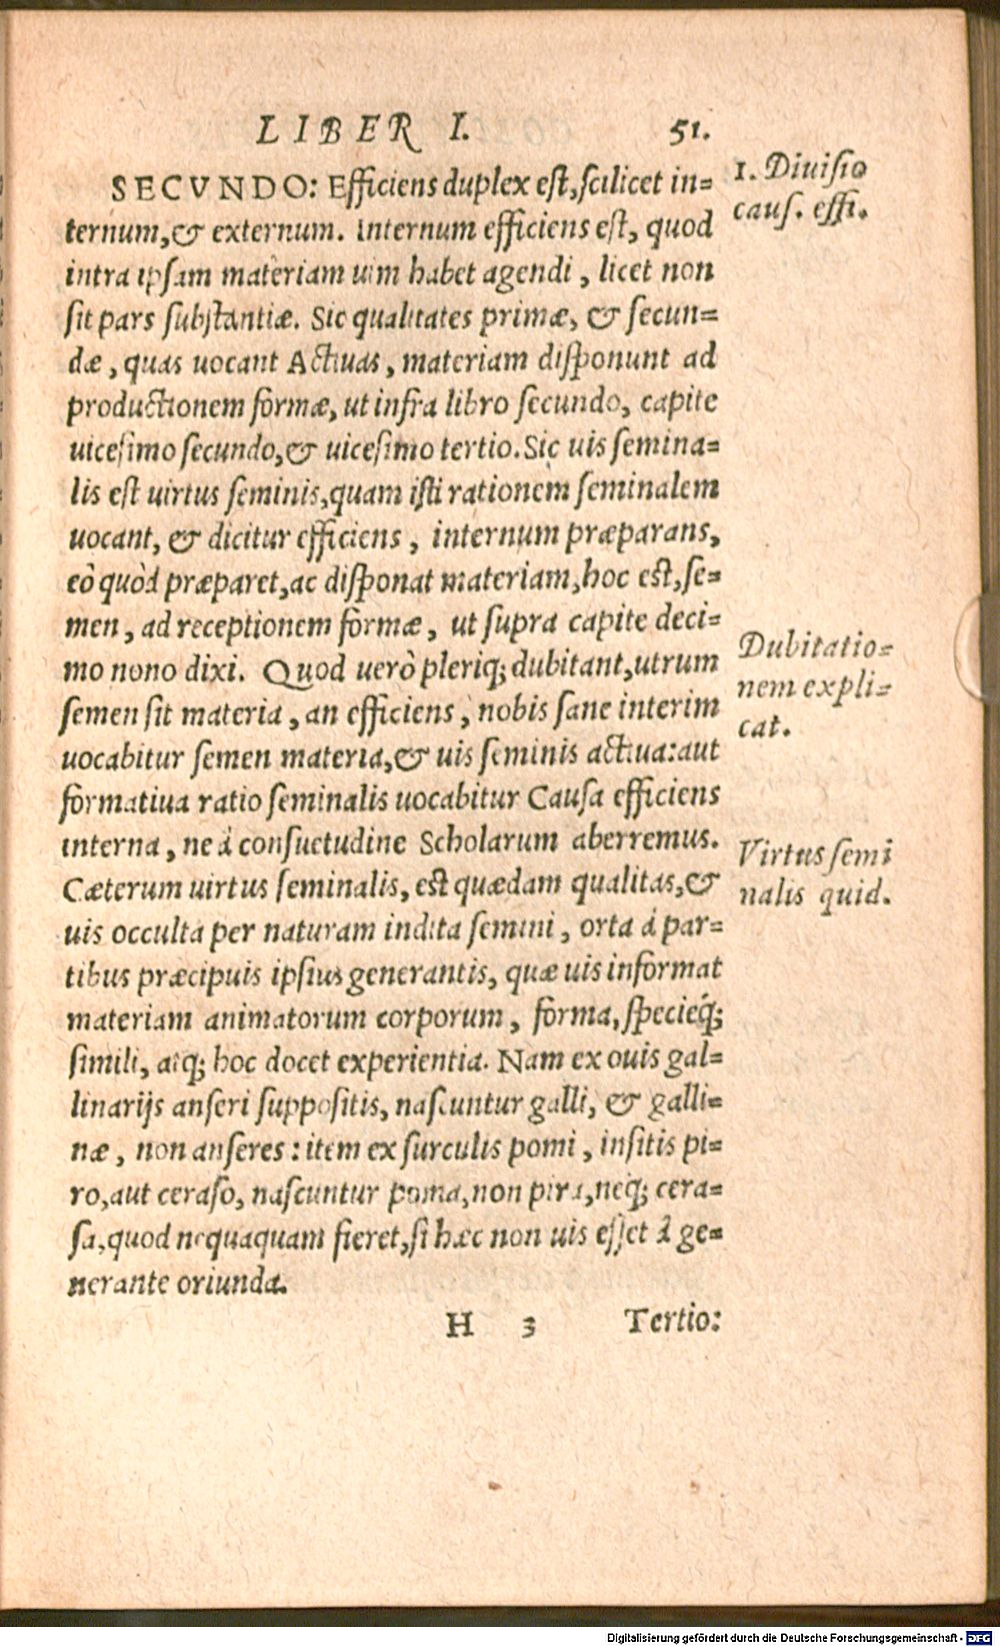 LIBER I. 51.
SECVNDO: Efficiens duplex est, scilicet in=
ternum, & externum. Internum efficiens est, quod
intra ipsam materiam uim habet agendi, licet non
sit pars substantiæ. Sic qualitates primæ, & secun=
dæ, quas uocant Actiuas, materiam disponunt ad
productionem formæ, ut infra libro secundo, capite
uicesimo secundo, & uicesimo tertio. Sic uis semina=
lis est uirtus seminis, quam isti rationem seminalem
uocant, & dicitur efficiens, internum præparans,
eò quòd præparet, ac disponat materiam, hoc est, se=
men, ad receptionem formæ, ut supra capite deci=
mo nono dixi. Quod uerò pleriq; dubitant, utrum
semen sit materia, an efficiens, nobis sane interim
uocabitur semen materia, & uis seminis actiua: aut
formatiua ratio seminalis uocabitur Causa efficiens
interna, ne á consuetudine Scholarum aberremus.
Cæterum uirtus seminalis, est quædam qualitas, &
uis occulta per naturam indita semini, orta á par=
tibus præcipuis ipsius generantis, quæ uis informat
materiam animatorum corporum, forma, specieq́;
simili, atq; hoc docet experientia. Nam ex ouis gal=
linarijs anseri suppositis, nascuntur galli, & galli=
næ, non anseres: item ex surculis pomi, insitis pi=
ro, aut ceraso, nascuntur poma, non pira, neq; cera=
sa, quod nequaquam fieret, si hæc non uis esset á ge=
nerante oriunda.
H 3 Tertio:
1. Diuisio
caus. effi.
Dubitatio=
nem expli=
cat.
Virtus semi
nalis quid.
Digitalisierung gefördert durch die Deutsche Forschungsgemeinschaft - DFG